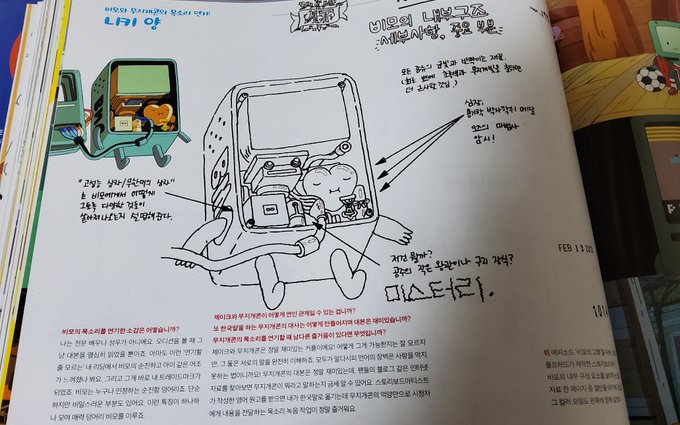 비모와 무지개콘의 목소리 연기:
니키 양
비모의 내부구조
세부사항, 중요 부분
모든 공주의 금빛과 반짝이는 재질.
더 근사할 것임.)
심장,
9권의 마법사
암시!
"고성능 상자/무한대의 상자"
는 비모에게서 어떻게
그토록 다양한 것들이
쏟아져나오는지 설명해준다.
저건 뭘까?
공주의 작은 왕관이나 구리 장식?
미스터리.
FEB 1
비모의 목소리를 연기한 소감은 어떻습니까?
나는 전문 배우나 성우가 아니에요. 오디션을 볼 때 그
냥 대본을 열심히 읽었을 뿐이죠. 아마도 이런 '연기할
줄 모르는' 내 리딩에서 비모의 순진하고 아이 같은 어조
가 느껴졌나 봐요. 그리고 그게 바로 내 트레이드마크가
되었죠. 비모는 누구나 인정하는 순진함 덩어리죠. 단순
하지만 비밀스러운 부분도 있어요. 이런 특징이 하나하
나 모여 매력 덩어리 비모를 이루죠.
제이크와 무지개콘이 어떻게 연인 관계일 수 있는 겁니까?
또 한국말을 하는 무지개콘의 대사는 어떻게 만들어지며 대본은 재미있습니까?
무지개콘의 목소리를 연기할 때 남다른 즐거움이 있다면 무엇입니까?
제이크와 무지개콘은 정말 재미있는 커플이에요! 어떻게 그게 가능한지는 잘 모르지
만, 그 둘은 서로의 말을 완전히 이해하죠. 모두가 알다시피 언어의 장벽은 사랑을 막지
못하는 법이니까요! 무지개콘의 대본은 정말 재미있는데, 팬들의 블로그 같은 인터넷
자료를 찾아보면 무지개콘이 뭐라고 말하는지 금세 알 수 있어요. 스토리보드아티스트
가 작성한 영어 원고를 받으면 내가 한국말로 옮기는데 무지개콘의 억양만으로 시청자
에게 내용을 전달하는 목소리 녹음 작업이 정말 즐거워요.
위 에피소드 '비모와 고향을'